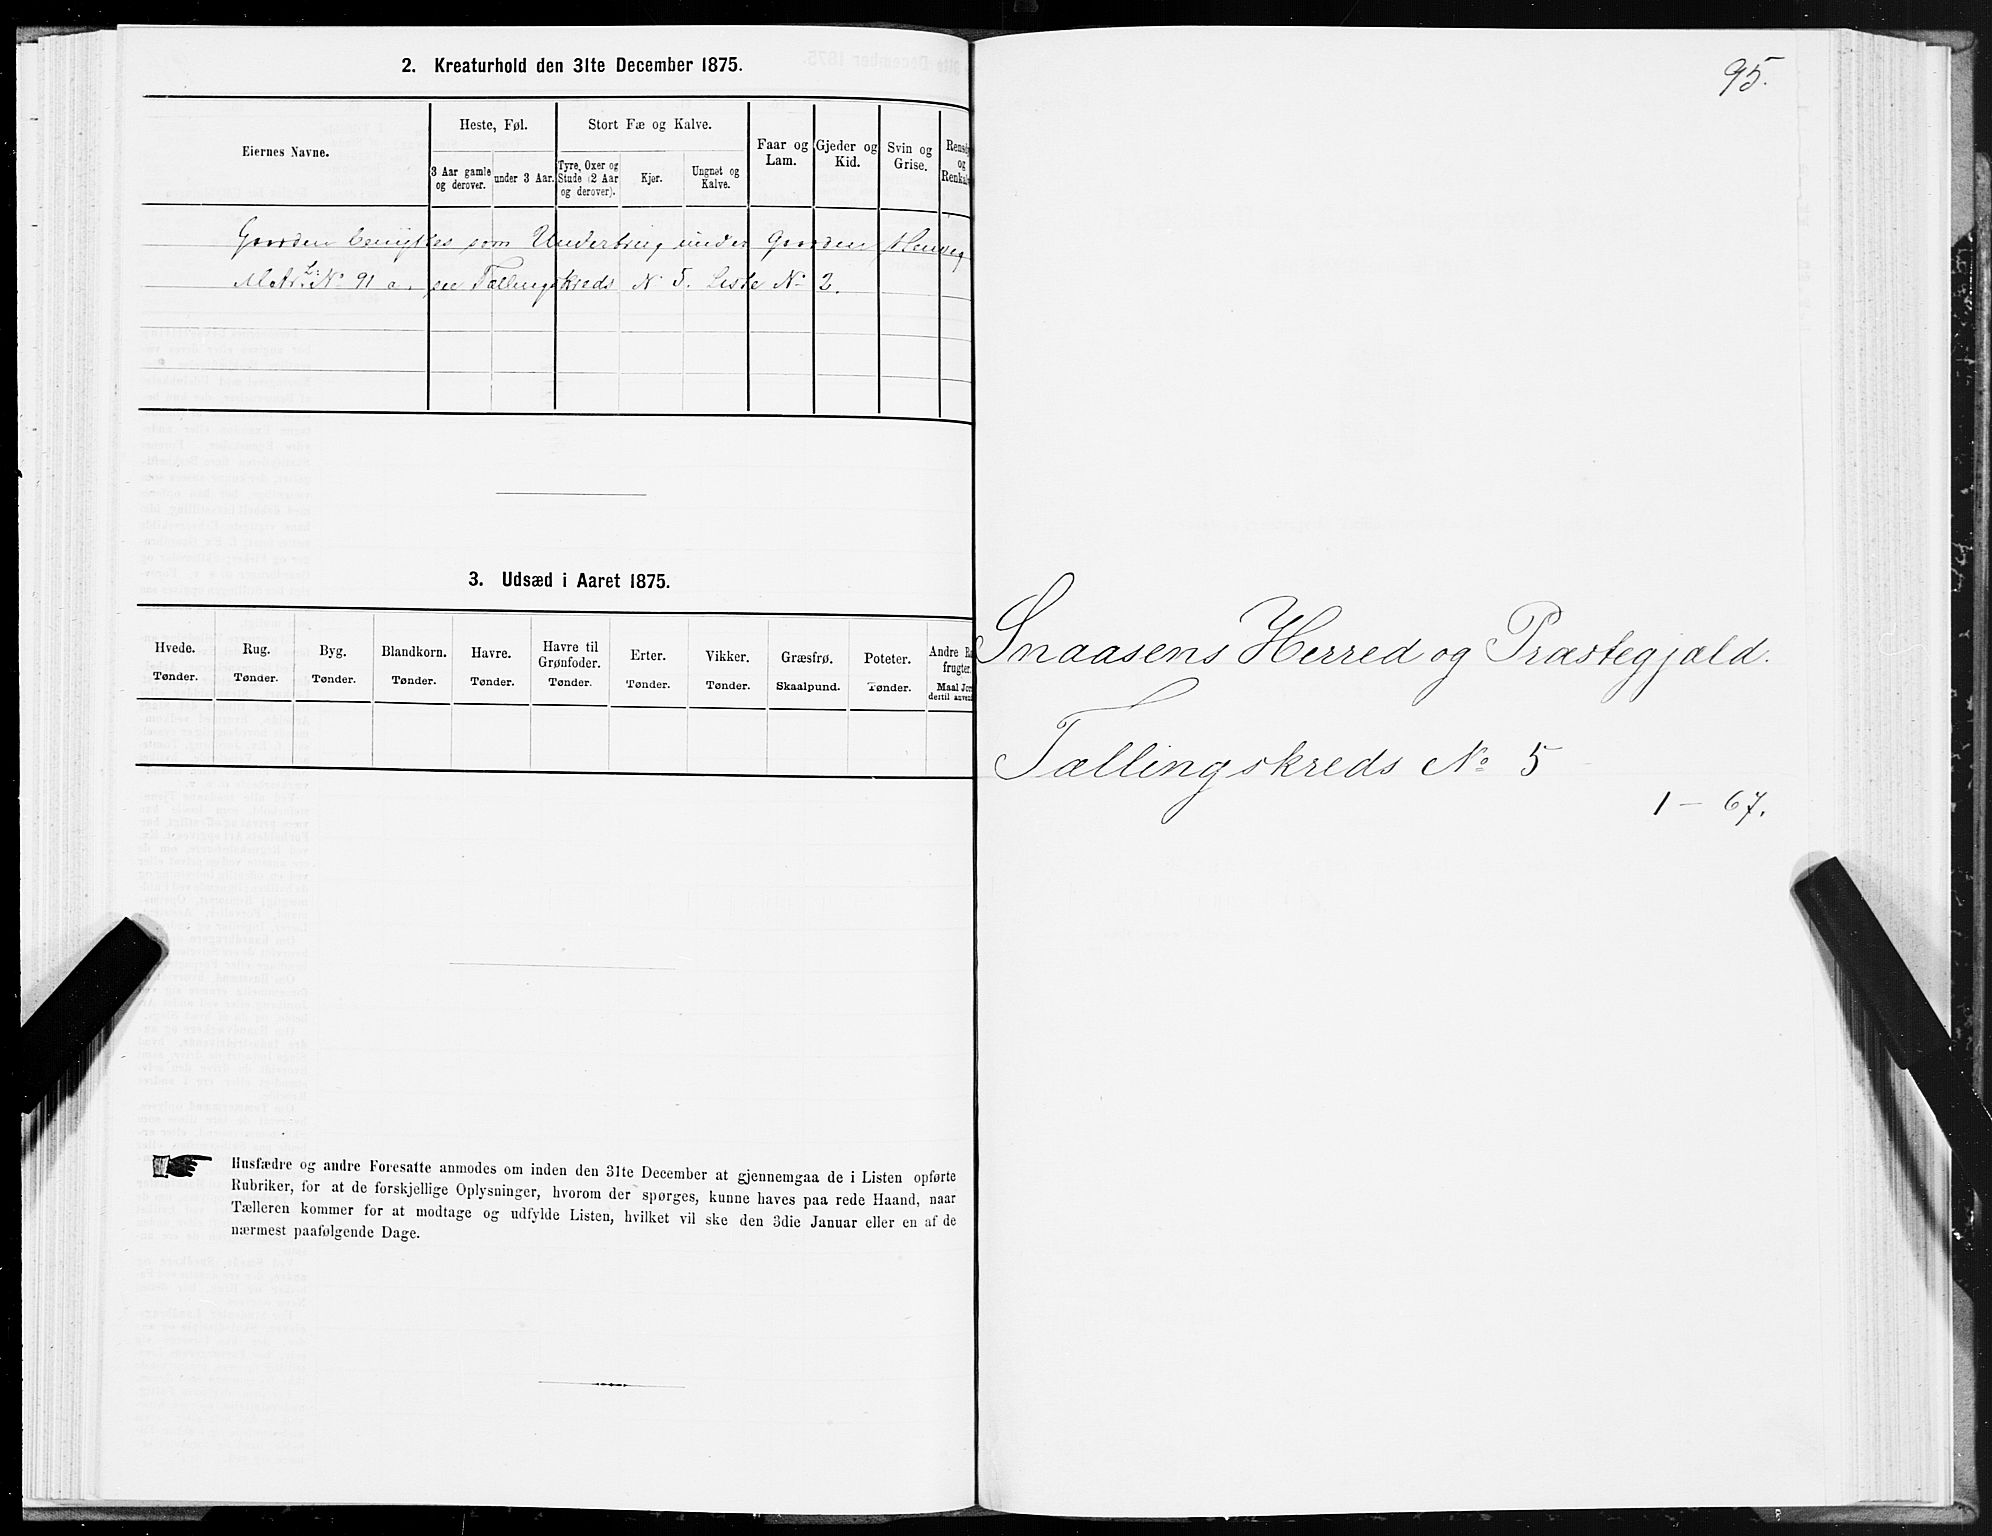 2. Kreaturhold den 31te December 1875.
Eiernes Navne.
Heste, Føl.
Stort Fæ og Kalve.
Faar og Lam.
Gjeder og Kid.
Svin og Grise.
Rensdy
og
Renkalv
3 Aar gamle og derover.
under 3 Aar.
Tyre, Oxer og Stude (2 Aar og derover).
Kjør.
Ungnøt og Kalve.
Gaarden benyttes som Underbrug under Gaarden
Matr. L: No 91 a. se Tællingskreds No 5. Liste No 2.
3. Udsæd i Aaret 1875.
Hvede. Rug. Byg. Blandkorn. Havre. Havre til Grønfoder. Erter. Vikker. Græsfrø. Poteter. Andre Ro frugter.
Tønder. Tønder. Tønder. Tønder. Tønder. Tønder. Tønder. Tønder. Skaalpund. Tønder. Maal Jor dertil anvend
Husfædre og andre Foresatte anmodes om inden den 31te December at gjennemgaa de i Listen opførte
Rubriker, for at de forskjellige Oplysninger, hvorom der spørges, kunne haves paa rede Haand, naar
Tælleren kommer for at modtage og udfylde Listen, hvilket vil ske den 3die Januar eller en af de
nærmest paafølgende Dage.
95.
Snaasens Herred og Præstegjæld.
Tællingskreds No 5
1 – 67.